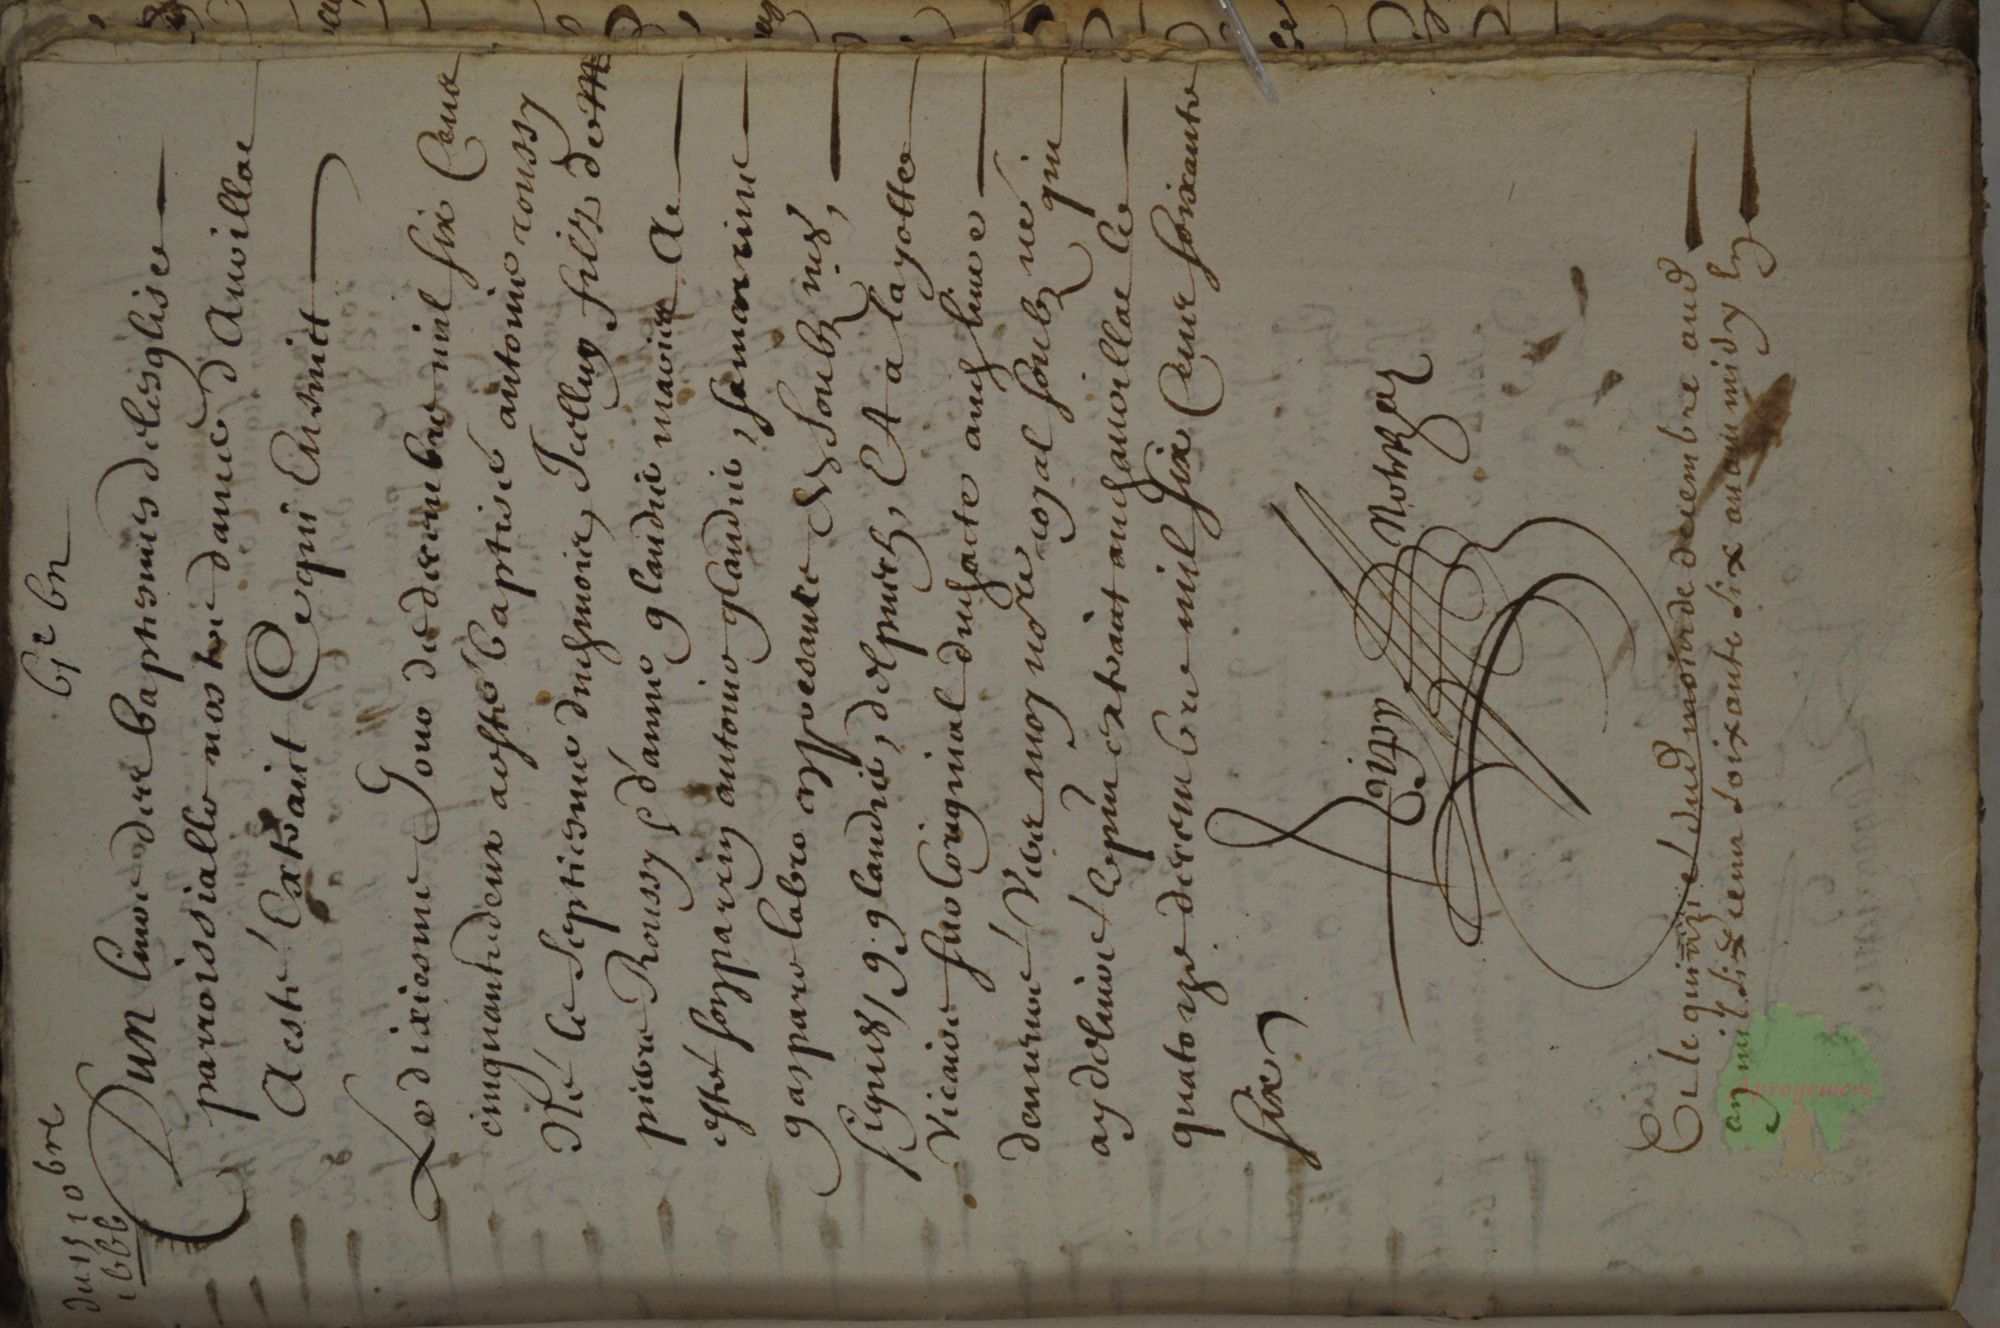 du 15 10bre
1666
Dun livre des baptesmes delesglise
parroissialle nostre dame d'Auvillar
A esté Extraict Ce qui Ensuict
Le dixiesme Jour de decembre mil six Cens
cinquante deux a esté baptisé antoine roussy
Né le septiesme dud moix, Jalluy filz de Mr
pierre Roussy & d'anne glaudie maries A
esté son parrin antoine glaudie, sa marrine
gaspare labro appesants & soubz nes,
signes J glaudie, delpuech, Et a layolle
Vicaire en Loriginal dud acte aud livre
demuré Vers moy no.re royal soubz né qui
ay delivré le pnt extraict aud auvillar le
quatorze decembre mil six Cens soixante
six
Gitpy Notre Ral
Et le quinze dud mois de decembre aud
an mil six cens soixante six avant midy
Aprogemere